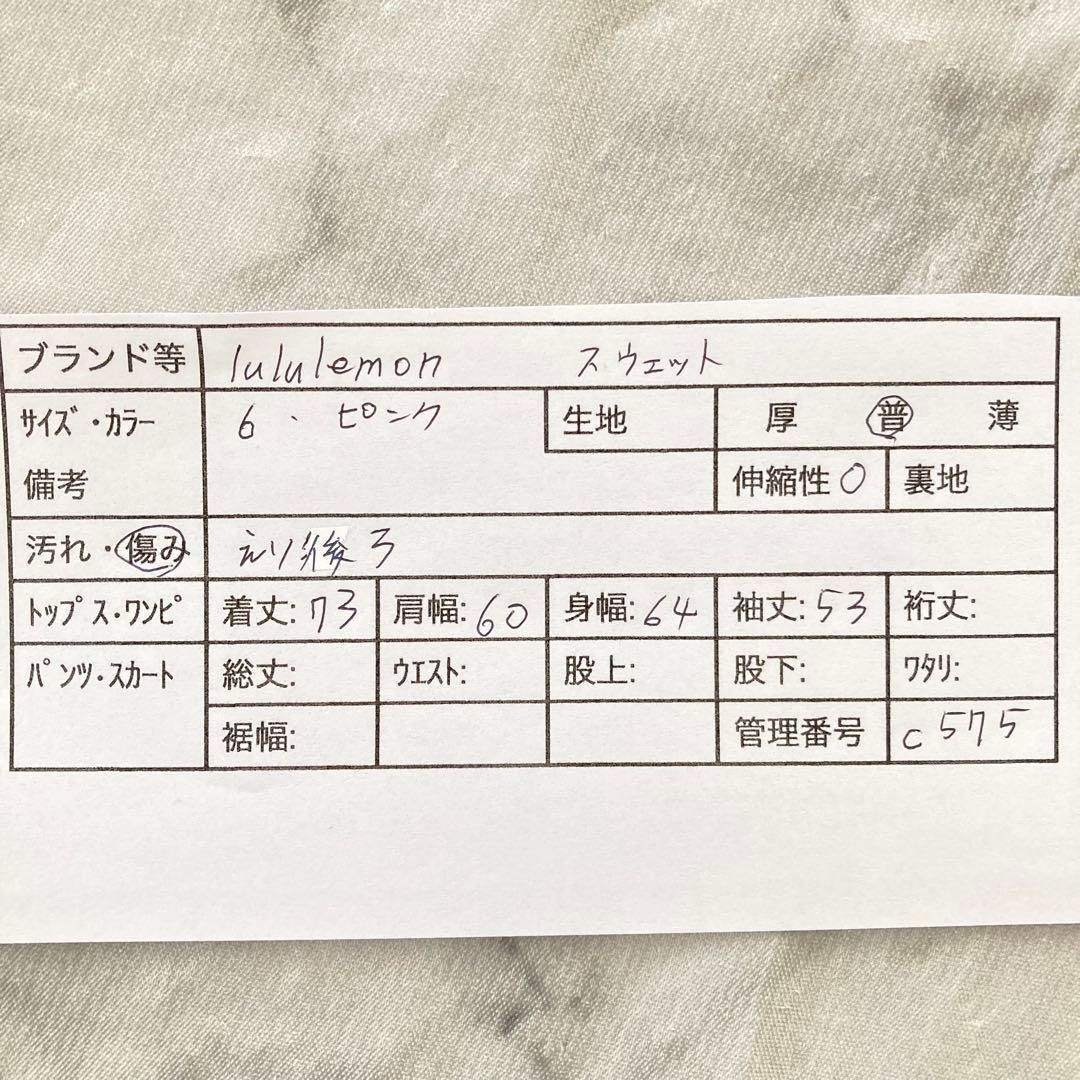 ブランド等 lululemon スウェット
サイズ・カラー 6 . ピンク 生地 厚 普 薄
備考 伸縮性 0 裏地
汚れ・傷み えり後ろ
トップス・ワンピ 着丈: 73 肩幅: 60 身幅: 64 袖丈: 53 裄丈:
パンツ・スカート 総丈: ウエスト: 股上: 股下: ワタリ:
裾幅: 管理番号 c575